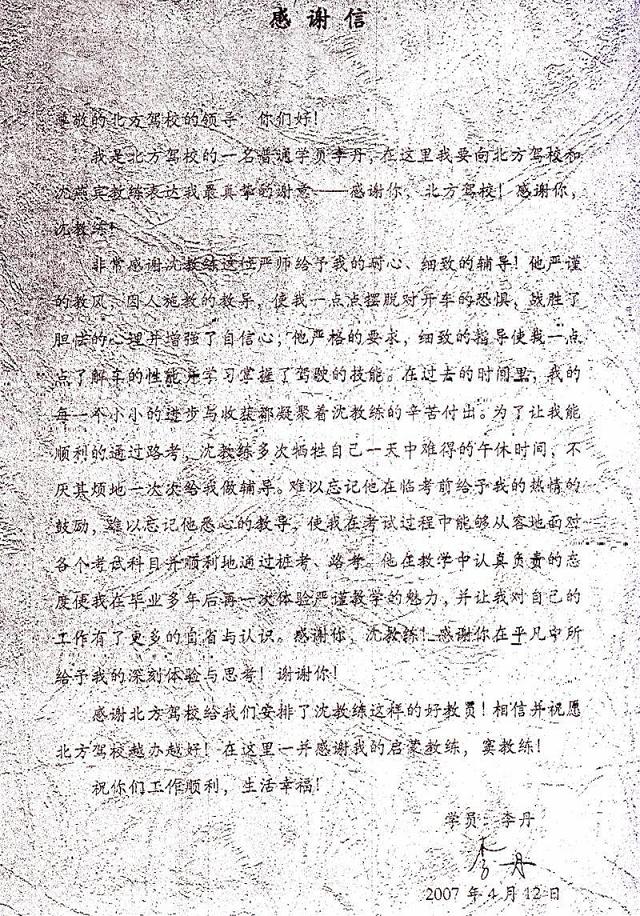 感谢信
尊敬的北方驾校的领导：你们好！
我是北方驾校的一名普通学员李丹，在这里我要向北方驾校和
沈燕宾教练表达我最真挚的谢意——感谢你，北方驾校！感谢你，
沈教练！
非常感谢沈教练这位严师给予我的耐心、细致的辅导！他严谨
的教风、因人施教的教导，使我一点点摆脱对开车的恐惧，战胜了
胆怯的心理并增强了自信心；他严格的要求，细致的指导使我一点
点了解车的性能并学习掌握了驾驶的技能。在过去的时间里，我的
每一个小小的进步与收获都凝聚着沈教练的辛苦付出。为了让我能
顺利的通过路考，沈教练多次牺牲自己一天中难得的午休时间，不
厌其烦地一次次给我做辅导。难以忘记他在临考前给予我的热情的
鼓励，难以忘记他悉心的教导，使我在考试过程中能够从容地面对
各个考试科目并顺利地通过桩考、路考。他在教学中认真负责的态
度使我在毕业多年后再一次体验严谨教学的魅力，并让我对自己的
工作有了更多的自省与认识。感谢你，沈教练！感谢你在平凡中所
给予我的深刻体验与思考！谢谢你！
感谢北方驾校给我们安排了沈教练这样的好教员！相信并祝愿
北方驾校越办越好！在这里一并感谢我的启蒙教练，窦教练！
祝你们工作顺利，生活幸福！
学员：李丹
李丹
2007年4月12日